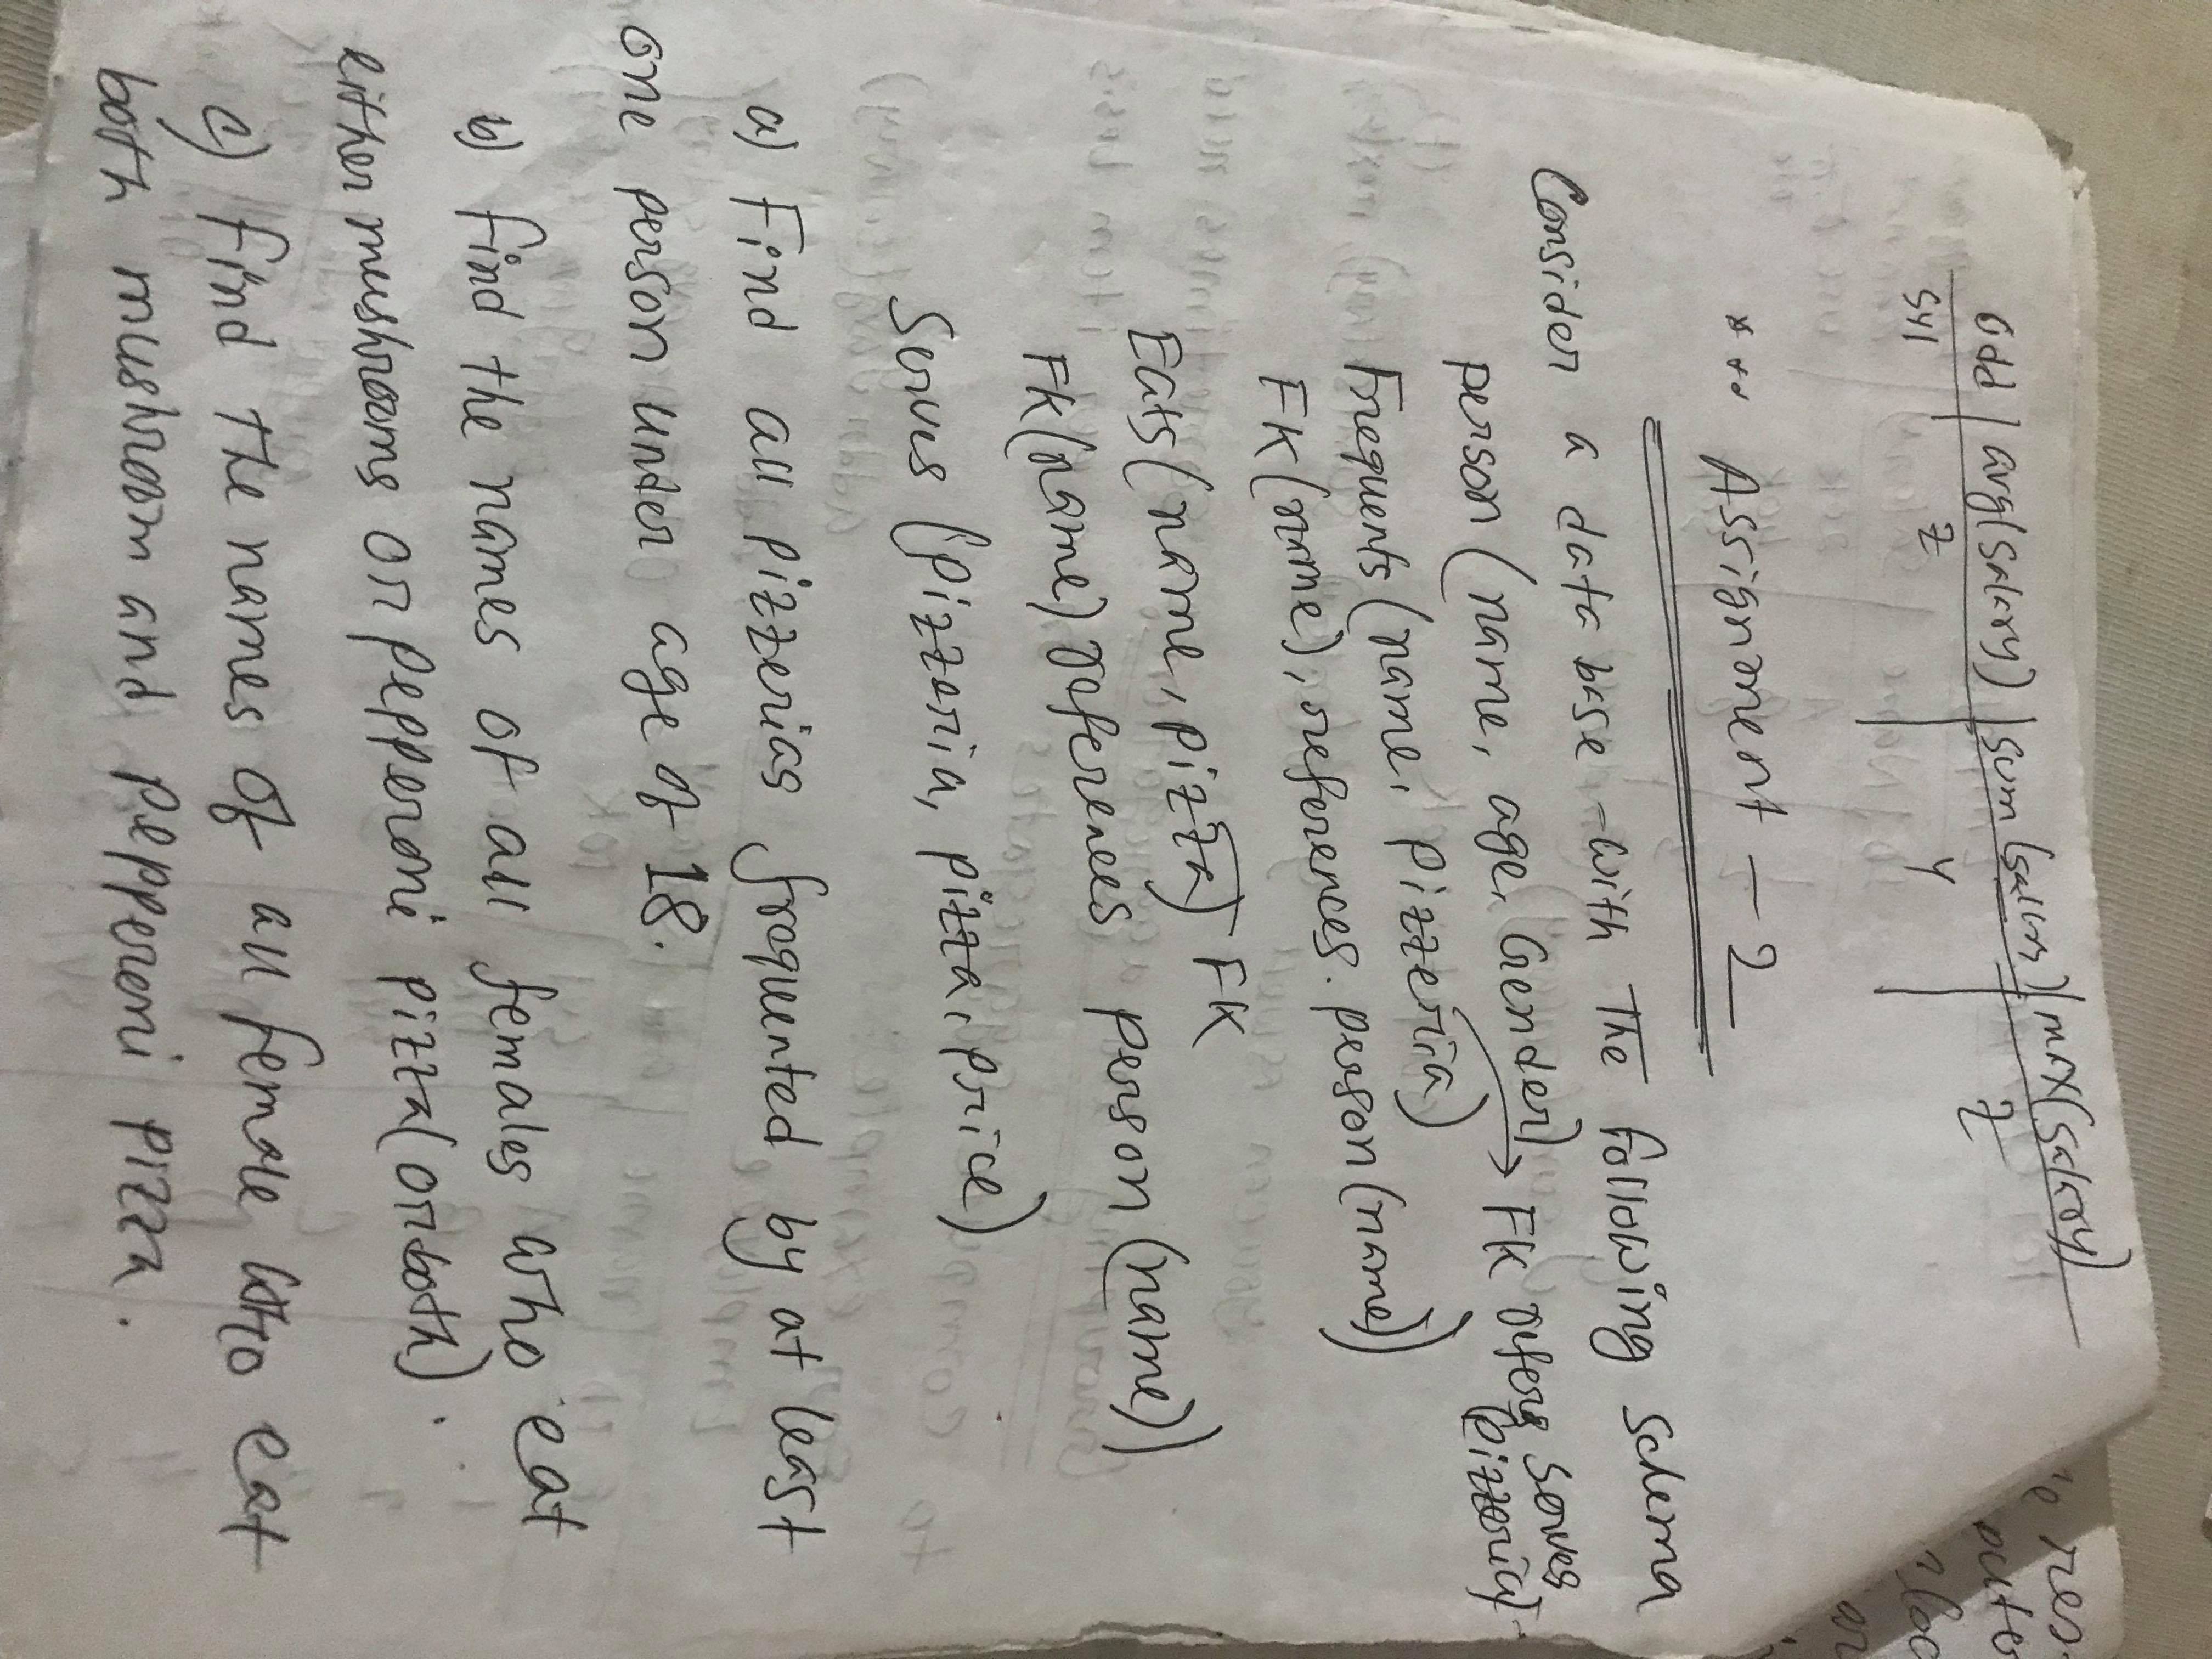 odd | avg(salary) | sum (salary) | max(salary)
syl | z | y | z
*** Assignment - 2
Consider a data base - with The following schema
person (name, age, Gender)
→ FK refers Serves (Pizzeria)
Frequents (name, Pizzeria)
FK (name), references. person (name))
Eats (name, pizza) FK
FK (name) references person (name))
Serves (Pizzeria, pizza, price)
a) Find all pizzerias frequented by at least
one person under age of 18.
b) find the names of all females who eat
either mushrooms or pepperoni pizza (or both).
c) find the names of all female who eat
both mushroom and pepperoni pizza.